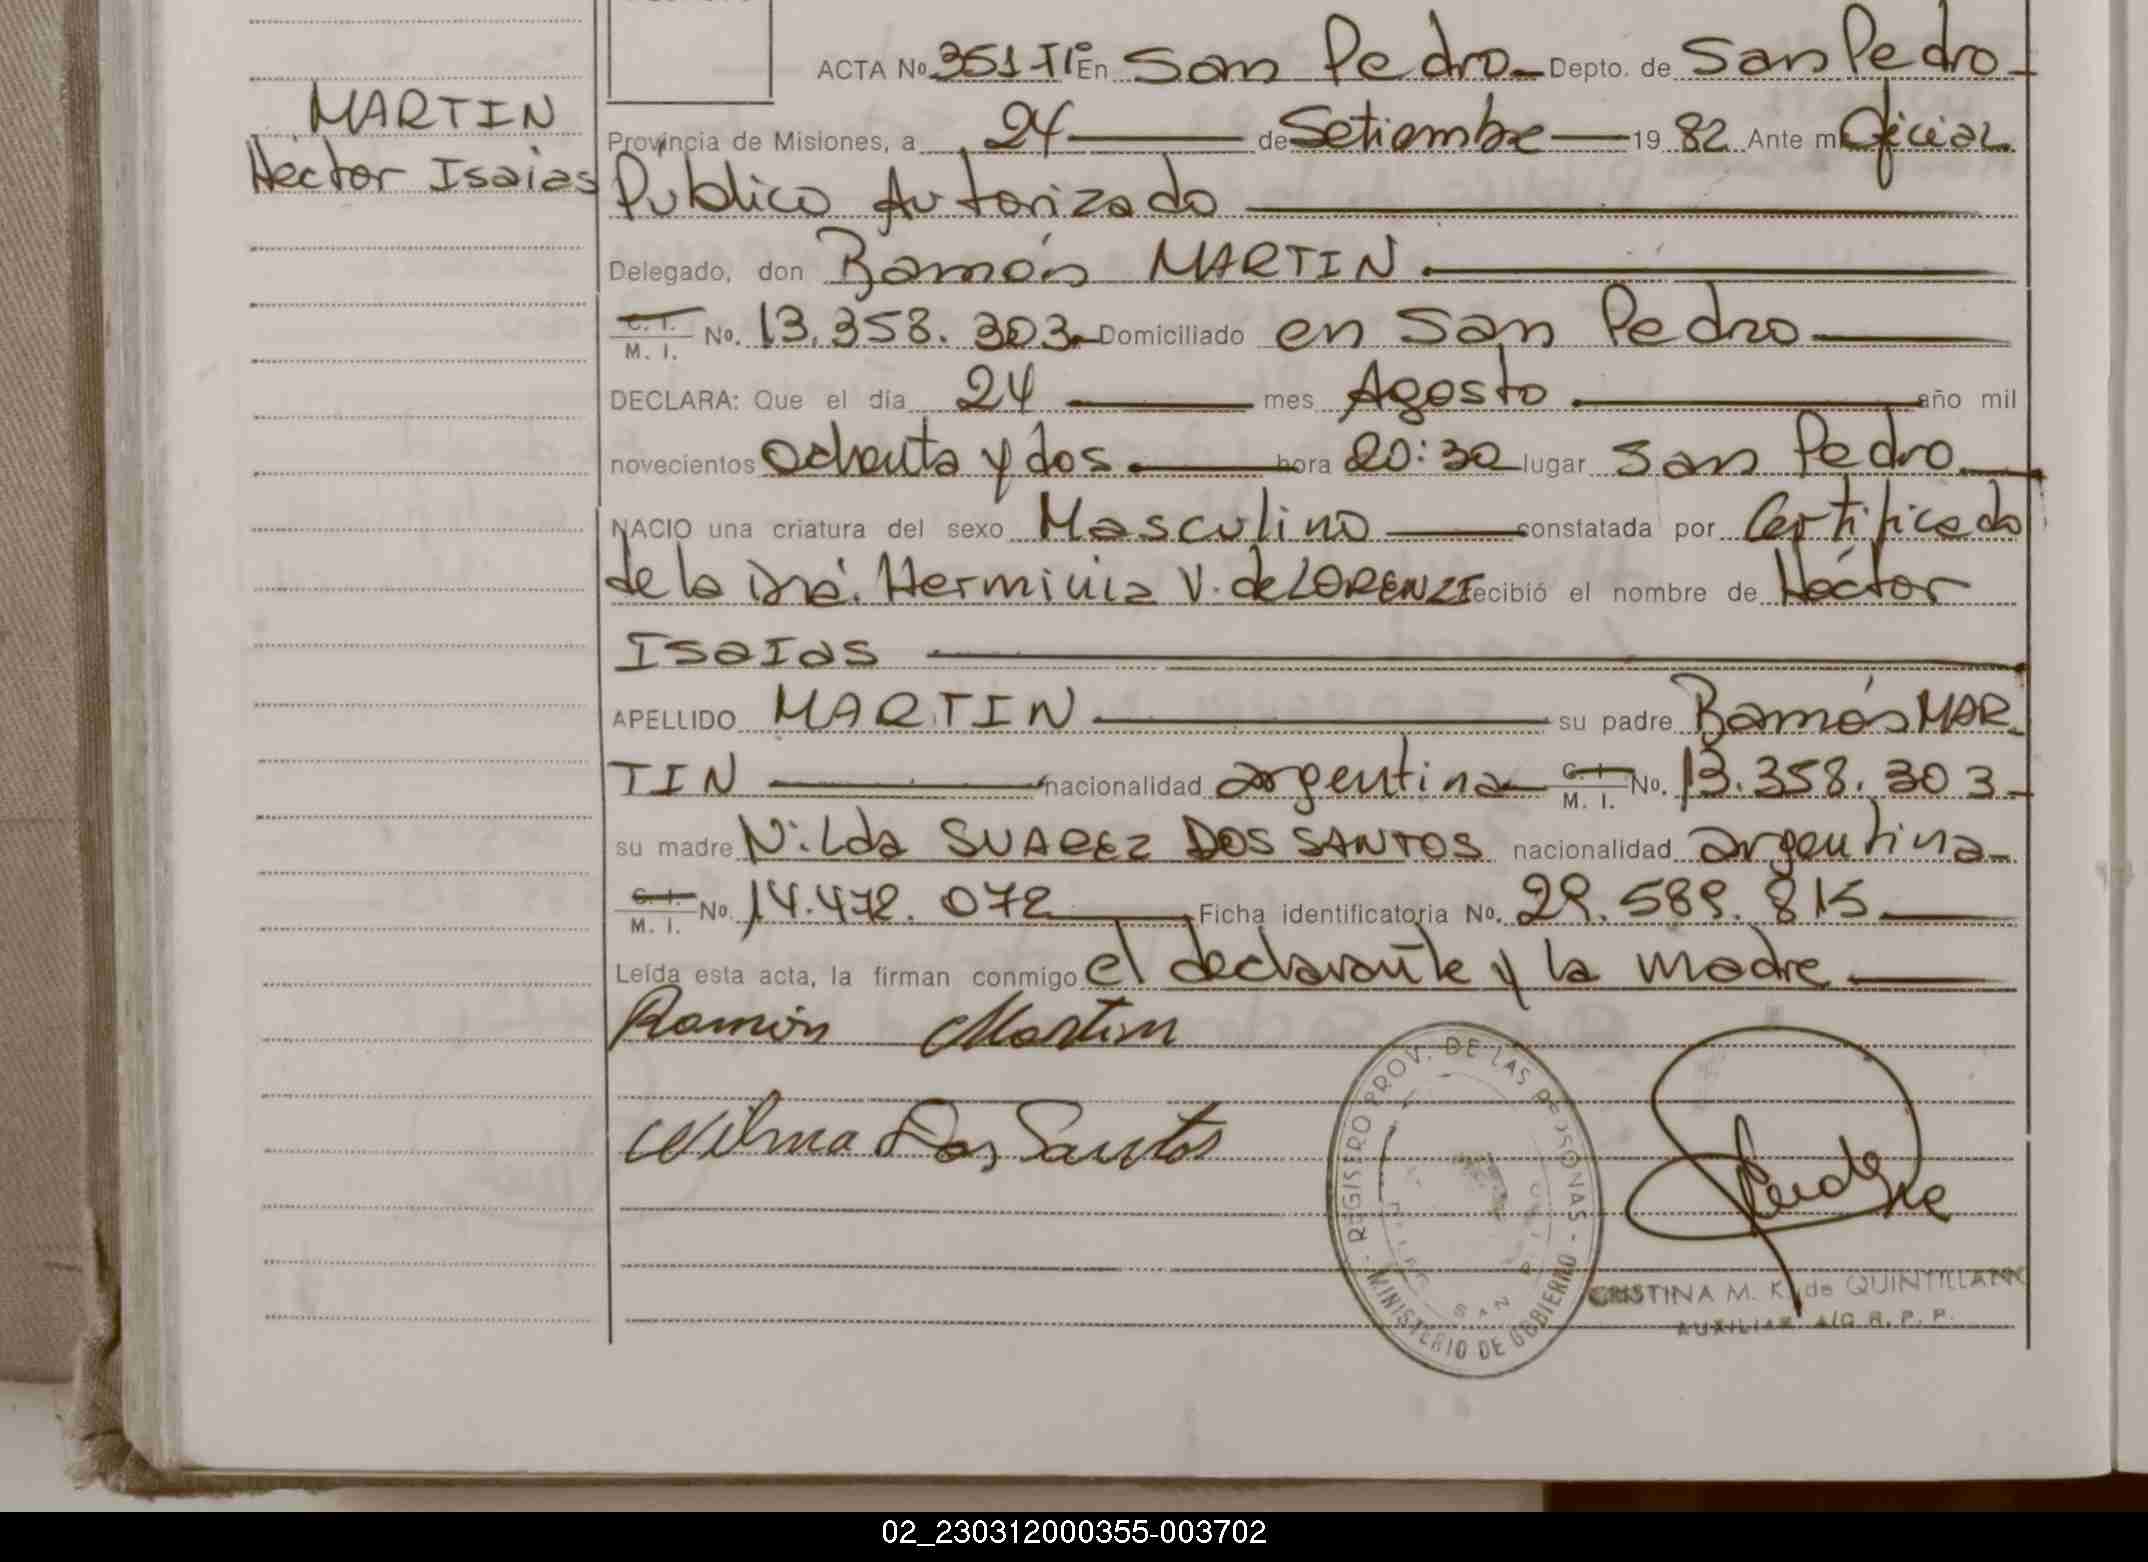 ACTA No. 351 Tº En San Pedro Depto. de San Pedro
MARTIN
Héctor Isaias
Provincia de Misiones, a 24 de Setiembre 19 82 Ante mí Oficial
Publico Autorizado
Delegado, don Ramón MARTIN
C. I. M. I. No. 13.358.303 Domiciliado en San Pedro
DECLARA: Que el día 24 mes Agosto año mil
novecientos ochenta y dos hora 20:30 lugar San Pedro
NACIO una criatura del sexo Masculino constatada por Certificado
de la Herminia V. de LORENZI recibió el nombre de Héctor
Isaias
APELLIDO MARTIN su padre Ramón MAR-
TIN nacionalidad argentina C. I. M. I. No. 13.358.303
su madre Nilda SUAREZ DOS SANTOS nacionalidad argentina
C. I. M. I. No. 14.472.072 Ficha identificatoria No. 29.589.815
Leída esta acta, la firman conmigo el declarante y la madre
Ramón Martin
Wilma Dos Santos
REGISERO PROV. DE LAS PERSONAS
MINISTERIO DE GOBIERNO
SAN
CRISTINA M. K. de QUINTILLANK
AUXILIAR A/C R. P. P.
02_230312000355-003702